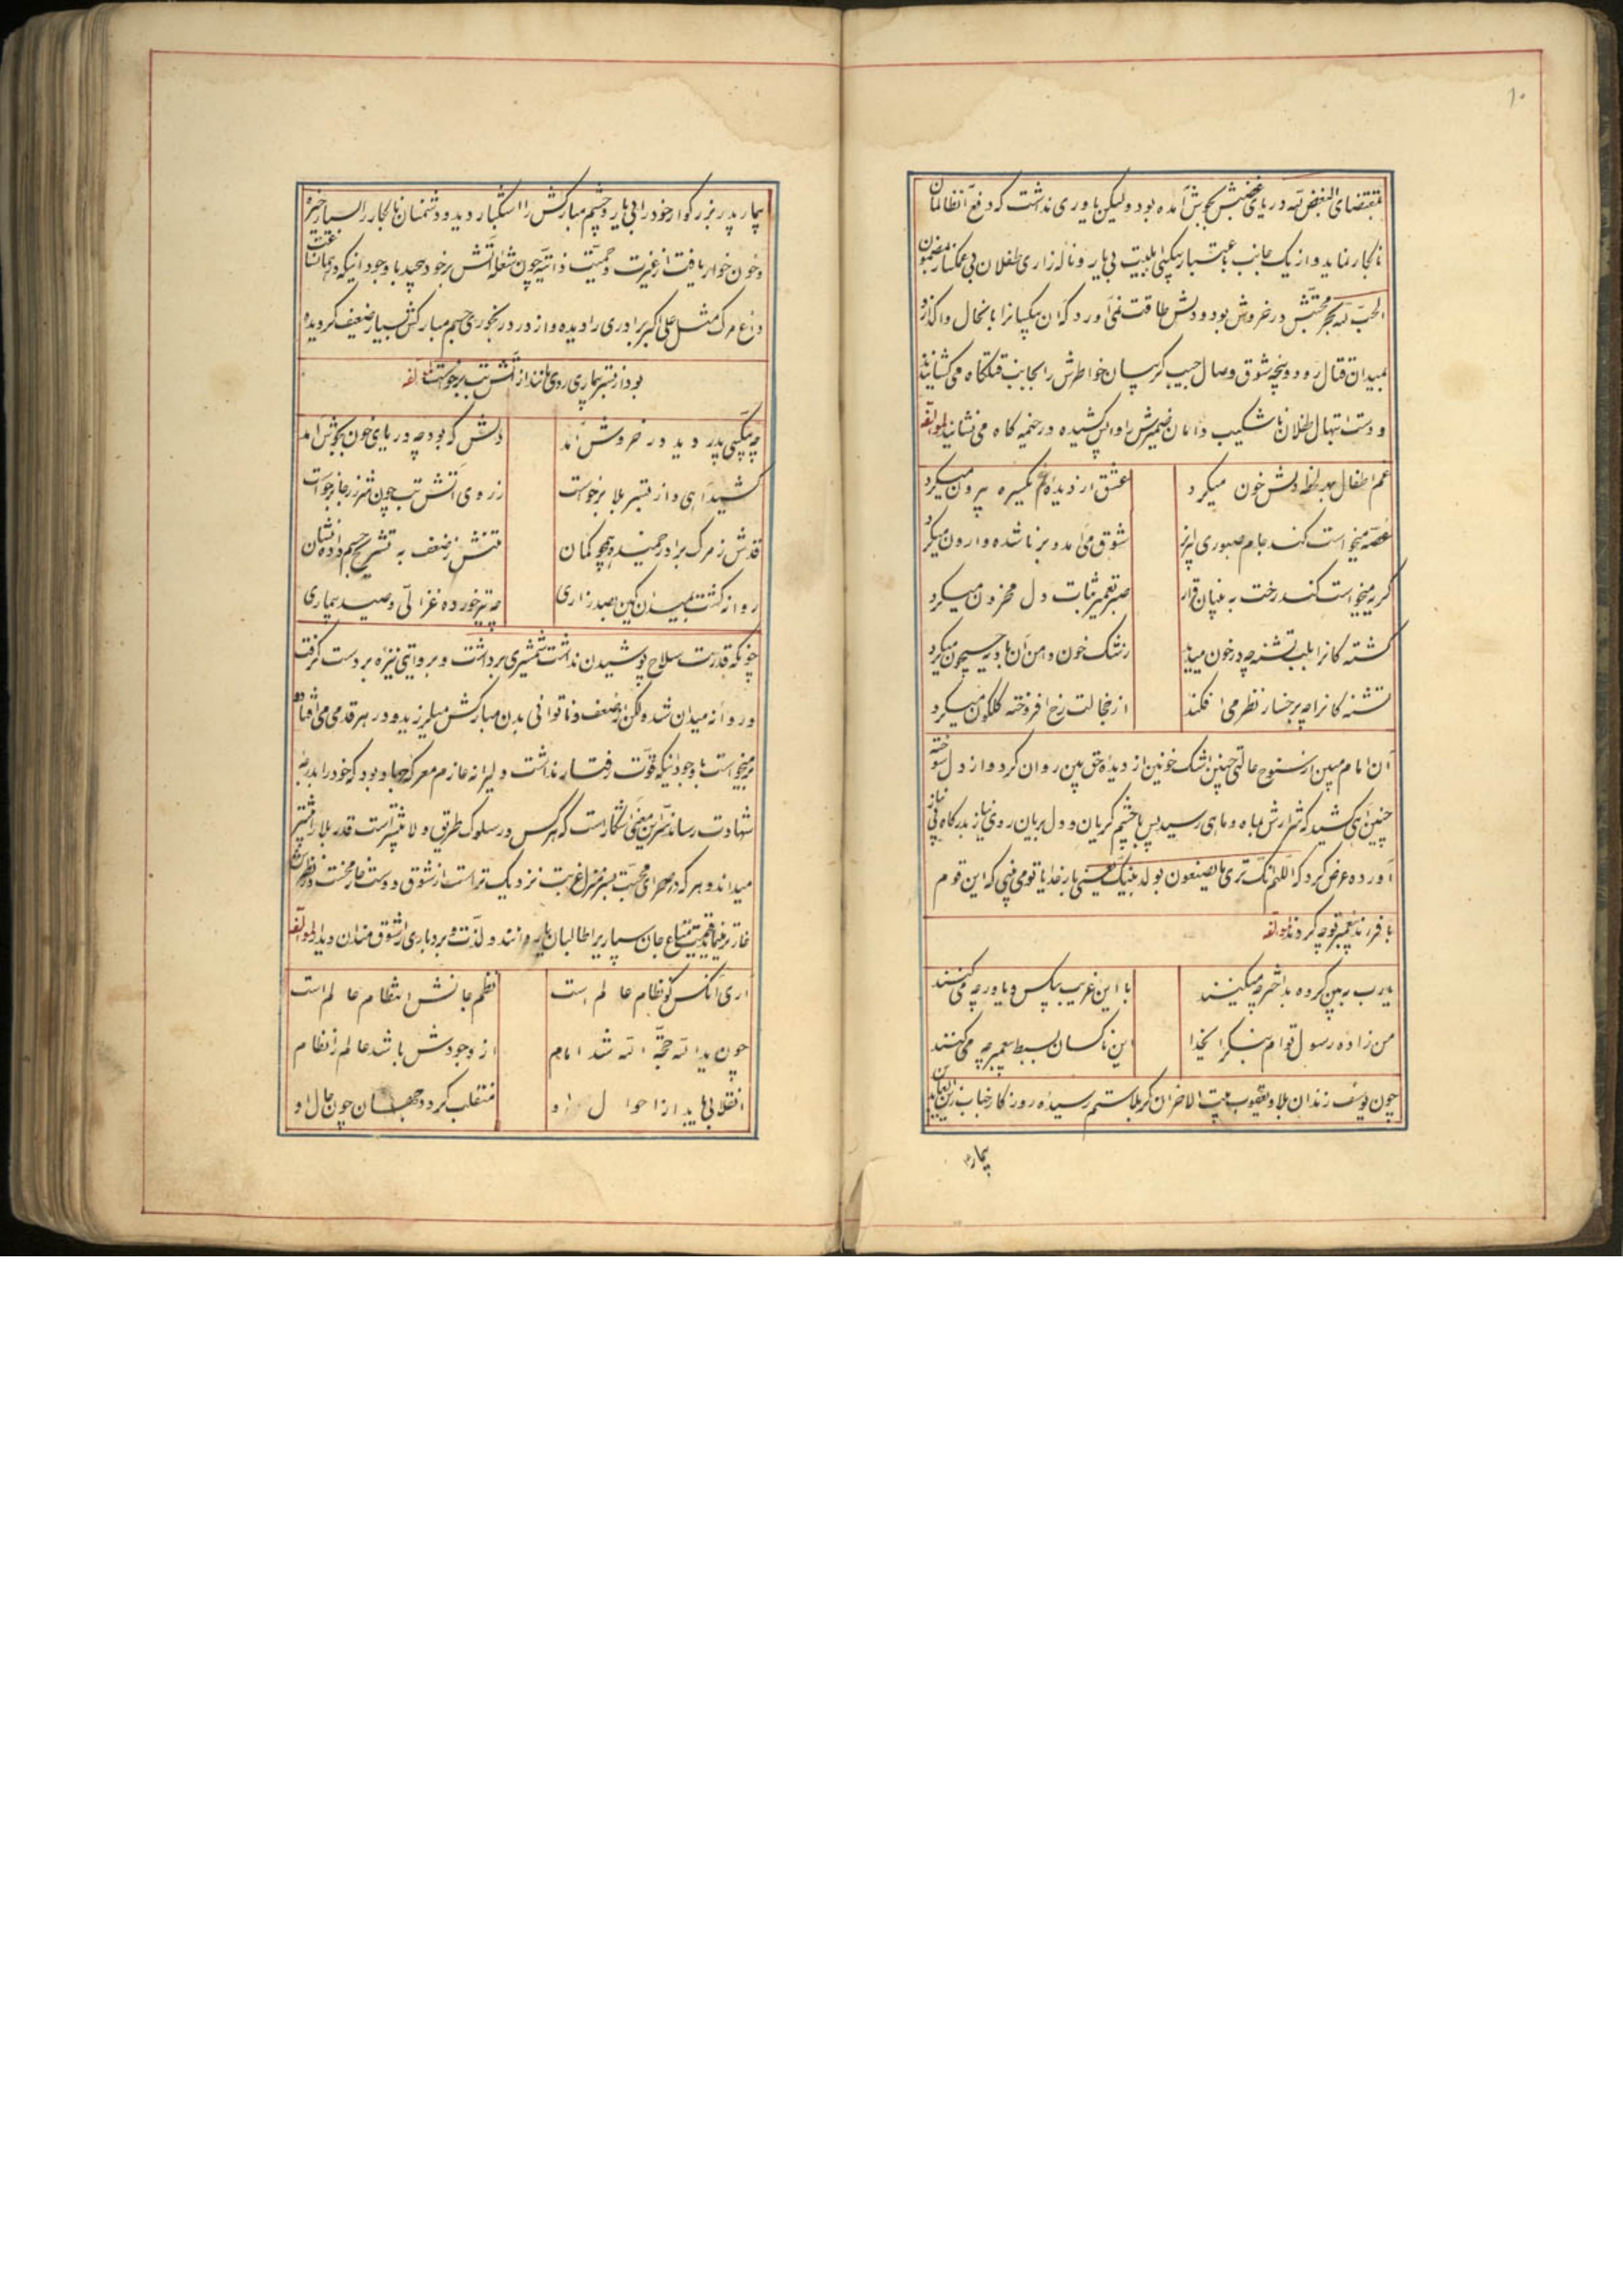 ۱۰
بمقتضای البغض لله دریای غضبش بجوش آمده بود ولیکن یاوری نداشت که دفع آن ظالمان
نابکار نماید و از یک جانب باعتبار بیکسی اهلبیت بی یار و ناله زاری طفلان بی غمکسار بمضمون
الحب لله بحر محبتش در خروش بود و دلش طاقت نمی آورد که آن بیکسانرا بانحال واکذارد
بمیدان قتال رود و پنجه شوق وصال حبیب کریبان خواطرش را بجانب قتلکاه می کشانید
و دست ابتهال طفلان ناشکیب دامان ضمیرش را واپس کشیده در خیمه کاه می نشانید لمؤلفه
غم اطفال بهر لحظه دلش خون میکرد عشق از دیده غم یکسره بیرون میکرد
غصه میخواست کند جام صبوری لبریز شوق می آمد و بر ناشده وارون میکرد
کریه میخواست کند رخت به بنیان قرار صبر تعمیر ثبات دل محزون میکرد
کشته کانرا بلب تشنه چه در خون میدید زشک خون دامن آن بادیه جیحون میکرد
تشنه کانرا چه برخسار نظر می افکند از خجالت رخ افروخته کلکون میکرد
آن امام مبین از سنوح حالتی چنین اشک خونین از دیده حق بین روان کرد و از دل سوخته
چنین آهی کشید که شرارش بماه و ماهی رسید پس با چشم کریان و دل بریان روی نیاز بدرکاه بی نیاز
آورده عرض کرد که اللهم انک تری ما یصنعون بولد نبیک یعنی بارخدایا تو می بینی که این قوم
با فرزند پیغمبر تو چه کردند لمؤلفه
یارب ببین کروه بداختر چه میکنند با این غریب بیکس و یاور چه می کنند
من زاده رسول توام بنکر ای خدا این ناکسان بسبط پیمبر چه می کنند
چون یوسف زندان بلا و یعقوب بیت الاحزان کربلا ستم رسیده روزکار جناب زین العابدین
بیمار
بیمار پدر بزرکوار خود را بی یار و چشم مبارکش را اشکبار دید و دشمنان نابکار را بسیار خیره
و خون خوار یافت از غیرت و حمیت ذاتیه چون شعله آتش برخود پیچید با وجود اینکه در همان ساعت
داغ مرک مثل علی اکبر برادری را دیده و از درد رنجوری جسم مبارکش بسیار ضعیف کردیده
بود از بستر بیماری روی مانند از آتش تب برخواست لمؤلفه
چه بیکسی پدر دید در خروش آمد دلش که بود چه دریای خون بجوش آمد
کشید آهی و از بستر بلا برخواست ز روی آتش تب چون شرر ز جا برخواست
قدش ز مرک برادر خمیده همچو کمان تنش ز ضعف به تشریح جسم داده نشان
روانه کشت بمیدان کین بصد زاری چه تیر خورده غزالی و صید بیماری
چونکه قدرت سلاح پوشیدن نداشت شمشیری برداشت و بروایتی نیزه بر دست کرفت
و روانه میدان شد لکن از ضعف و ناتوانی بدن مبارکش میلرزید و در هر قدمی می افتاد و
برمیخواست با وجود اینکه قوت رفتار نداشت دلیرانه عازم معرکه جهاد بود که خود را بدرجه
شهادت رساند سر این معنی آشکار است که هر کس در سلوک طریق ولا بیشتر است قدر بلا را بیشتر
میداند و هر که در صحرای محبت بسرمنزل غربت نزدیک تر است از شوق دوست خار محنت در نظرش
قیمت متاع جان سپاری را طالبان یار دانند و لذت بردباری را شوق مندان دیدار لمؤلفه
آری آنکس کو نظام عالم است نظم جانش انتظام عالم است
چون یدالله حجة الله شد امام از وجودش باشد عالم را نظام
انقلابی یابد ار احوال او منقلب کردد جهان چون حال او